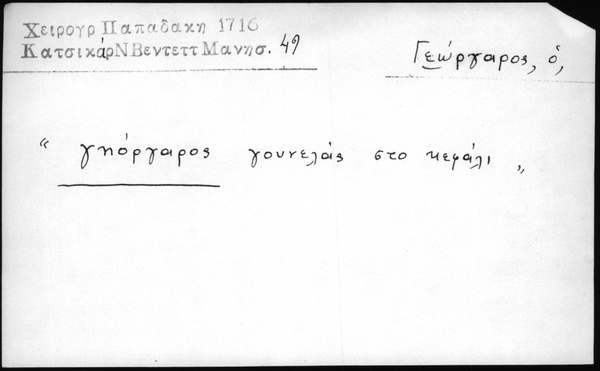 Χειρογρ Παπαδακη 1716
ΚατσικάρΝ Βεντεττ Μανησ. 49
Γεώργαρος, ὁ,
“ γηόργαρος γουνελάς στο κεφάλι „